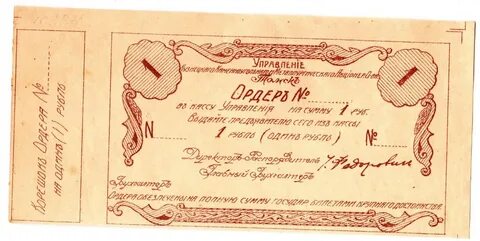 Корешокъ Ордера №
на одинъ (1) рубль
1
1
Управленіе
Томскъ
Ордеръ №
въ кассу Управленія на сумму 1 руб.
Выдайте предъявителю сего изъ кассы
1 рубль (одинъ рубль)
N
№
Директоръ Распорядитель
Главный Бухгалтеръ
Бухгалтеръ
Ордера обезпечены на полную сумму государ. билетами крупнаго достоинства